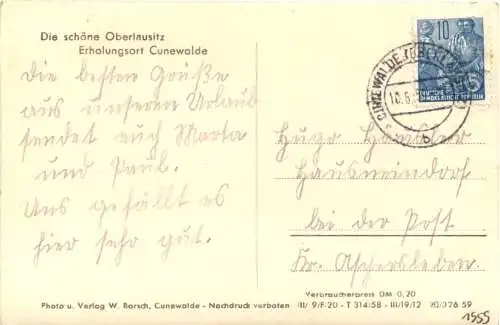 Die schöne Oberlausitz
Erholungsort Cunewalde
Die besten Grüße
aus unseren Urlaub
sendet euch Marta
und Paul.
Uns gefällt es
hier sehr gut.
10
CUNEWALDE (OBERL
10.6.
b
DEUTSCHE
DEMOKRATISCHE REPUBLIK
Hugo
bei der Post
Kr. Aschersleben.
Verbraucherpreis DM 0,20
Photo u. Verlag W. Borsch, Cunewalde - Nachdruck verboten III/9/F.20 - T 314/58 - III/19/12 20/376 59
1959